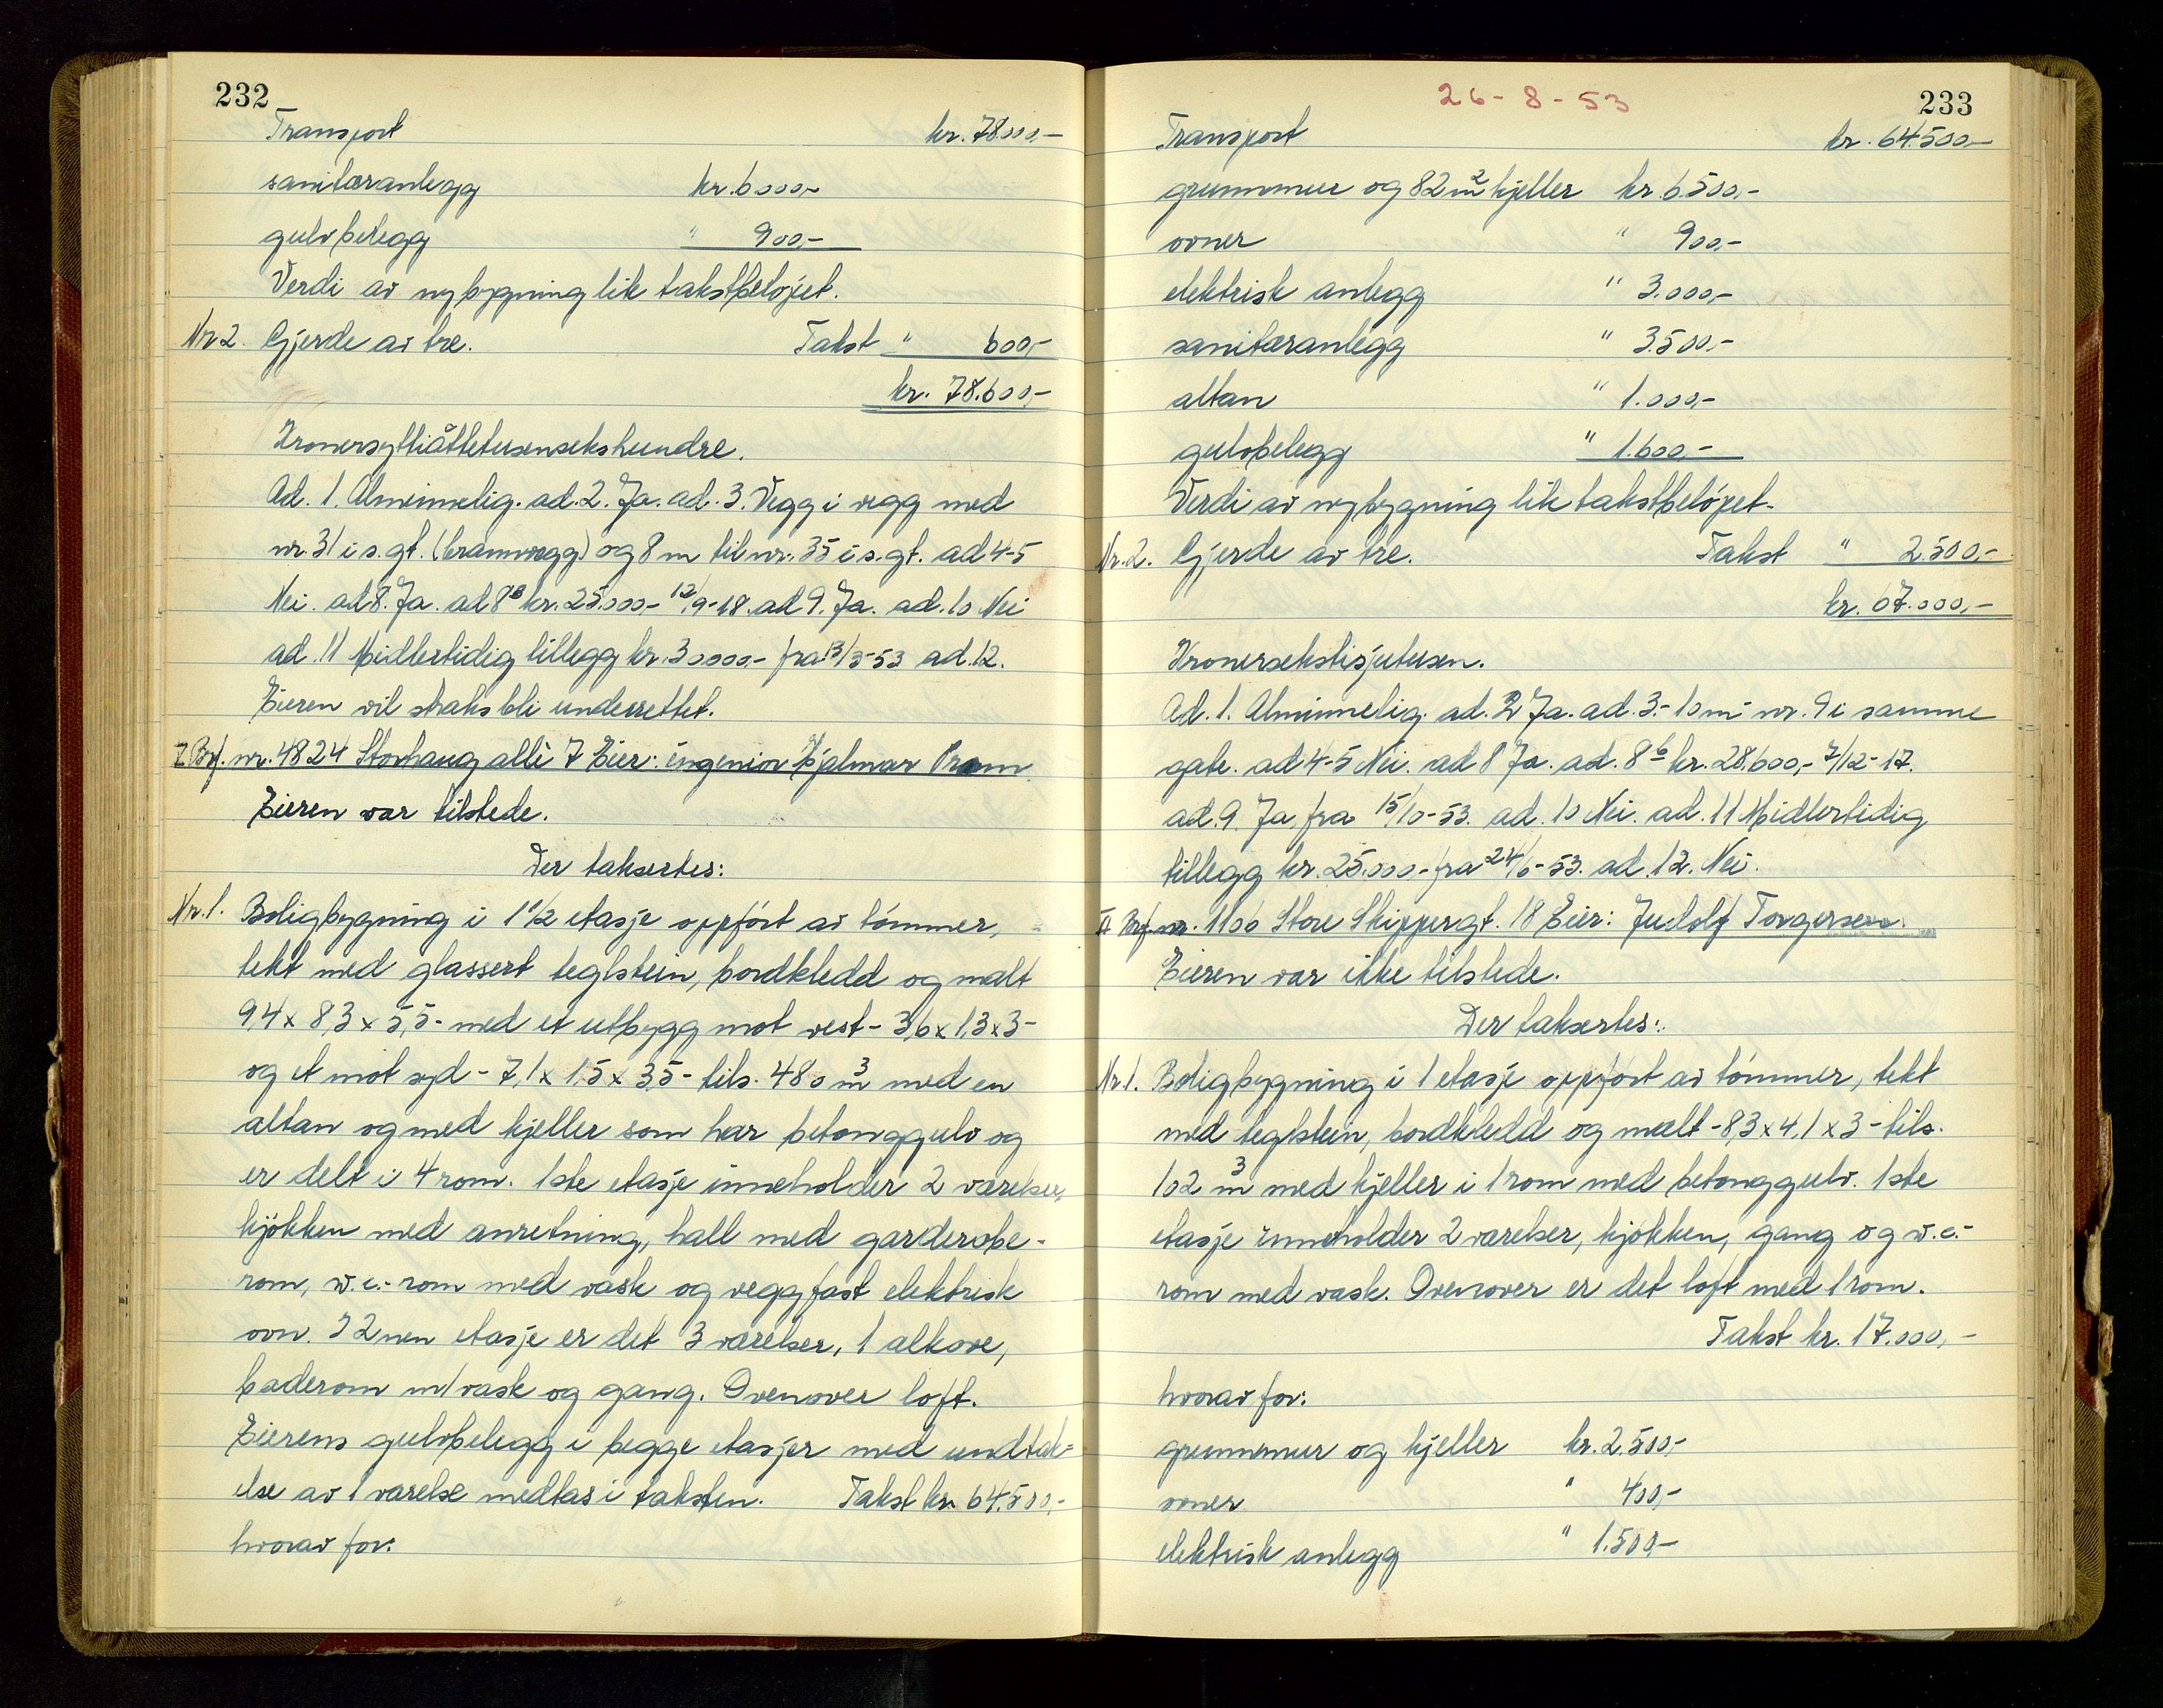 232
Transport kr. 78.000,-
sanitæranlegg kr. 6000,-
gulvbelegg " 900,-
Verdi av nybygning lik takstbeløpet.
Nr 2. Gjerde av tre. Takst " 600,-
kr. 78.600,-
Kronersyttiåttetusensekshundre.
Ad. 1. Alminnelig. ad. 2. Ja. ad. 3. Vegg i vegg med
nr. 31 i s. gt. (brannvegg) og 8 m til nr. 35 i s. gt. ad 4-5
Nei. ad 8. Ja. ad 8b kr. 25.000,- 12/9-18. ad 9. Ja. ad. 10 Nei
ad. 11 Midlertidig tillegg kr. 30000,- fra 13/3-53 ad. 12.
Eieren vil straks bli underrettet.
Brf. nr. 4824 Storhaug allè 7 Eier: ingeniør Hjalmar Pram
Eieren var tilstede.
Der taksertes:
Nr. 1. Boligbygning i 1 1/2 etasje oppført av tømmer,
tekt med glassert teglstein, bordkledd og malt
9,4 x 8,3 x 5,5 - med et utbygg mot vest - 3,6 x 1,3 x 3 -
og et mot syd - 7,1 x 1,5 x 3,5 - tils. 480 m3 med en
altan og med kjeller som har betonggulv og
er delt i 4 rom. 1ste etasje inneholder 2 værelser,
kjøkken med anretning, hall med garderobe-
rom, w.c.- rom med vask og veggfast elektrisk
ovn. I 2nen etasje er det 3 værelser, 1 alkove,
baderom m/vask og gang. Ovenover loft.
Eierens gulvbelegg i begge etasjer med undtak-
else av 1 værelse medtas i taksten. Takst kr. 64.500,-
hvorav for:
26-8-53
233
Transport kr. 64.500,-
grunnmur og 82 m2 kjeller kr. 6.500,-
ovner " 900,-
elektrisk anlegg " 3.000,-
sanitæranlegg " 3.500,-
altan " 1.000,-
gulvbelegg " 1.600,-
Verdi av nybygning lik takstbeløpet.
Nr. 2. Gjerde av tre. Takst " 2.500,-
kr. 67.000,-
Kronersekstisjutusen.
Ad. 1. Alminnelig. ad. 2 Ja. ad. 3. - 10 m - nr. 9 i samme
gate. ad 4-5 Nei. ad 8 Ja. ad. 8b kr. 28.600,- 7/12-17.
ad. 9. Ja fra 15/10-53. ad. 10 Nei. ad. 11 Midlertidig
tillegg kr. 25.000,- fra 24/6-53. ad. 12. Nei.
Brf. nr. 1106 Store Skippergt. 18 Eier: Torgersen
Eieren var ikke tilstede.
Der taksertes:
Nr. 1. Boligbygning i 1 etasje oppført av tømmer, tekt
med teglstein, bordkledd og malt - 8,3 x 4,1 x 3 - tils.
102 m3 med kjeller i 1 rom med betonggulv. 1ste
etasje inneholder 2 værelser, kjøkken, gang og w.c.-
rom med vask. Ovenover er det loft med 1 rom.
Takst kr. 17.000,-
hvorav for:
grunnmur og kjeller kr. 2.500,-
ovner " 400,-
elektrisk anlegg " 1.500,-